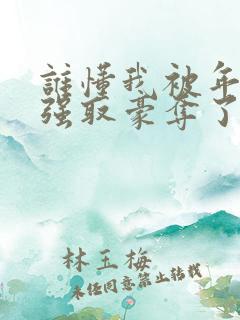 誰懂我被年
强取豪夺了
林玉梅
未经同意禁止转载